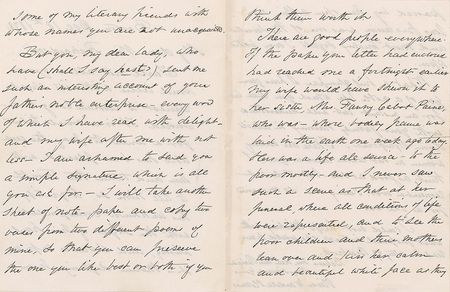 some of my literary friends with
whose names you are not unacquainted.
But you, my dear lady, who
have (shall I say hast?) sent me
such an interesting account of your
father's noble enterprise – every word
of which I have read with delight
and my wife after me with not
less – I am ashamed to send you
a simple signature, which is all
you ask for – I will take another
sheet of note-paper and copy two
verses from two different poems of
mine, so that you can preserve
the one you like best or both if you
think them worth it.
There are good people everywhere
If the paper your letter had enclosed
had reached one a fortnight earlier
my wife would have shown it to
her sister Mrs Fanny Cabot Paine,
who was – whose bodily frame was
laid in the earth one week ago today.
Hers was a life all service – to the
poor mostly – and I never saw
such a scene as that at her
funeral where all conditions of life
were represented, and to see the
poor children and their mothers
lean over and kiss her calm
and beautiful white face as they